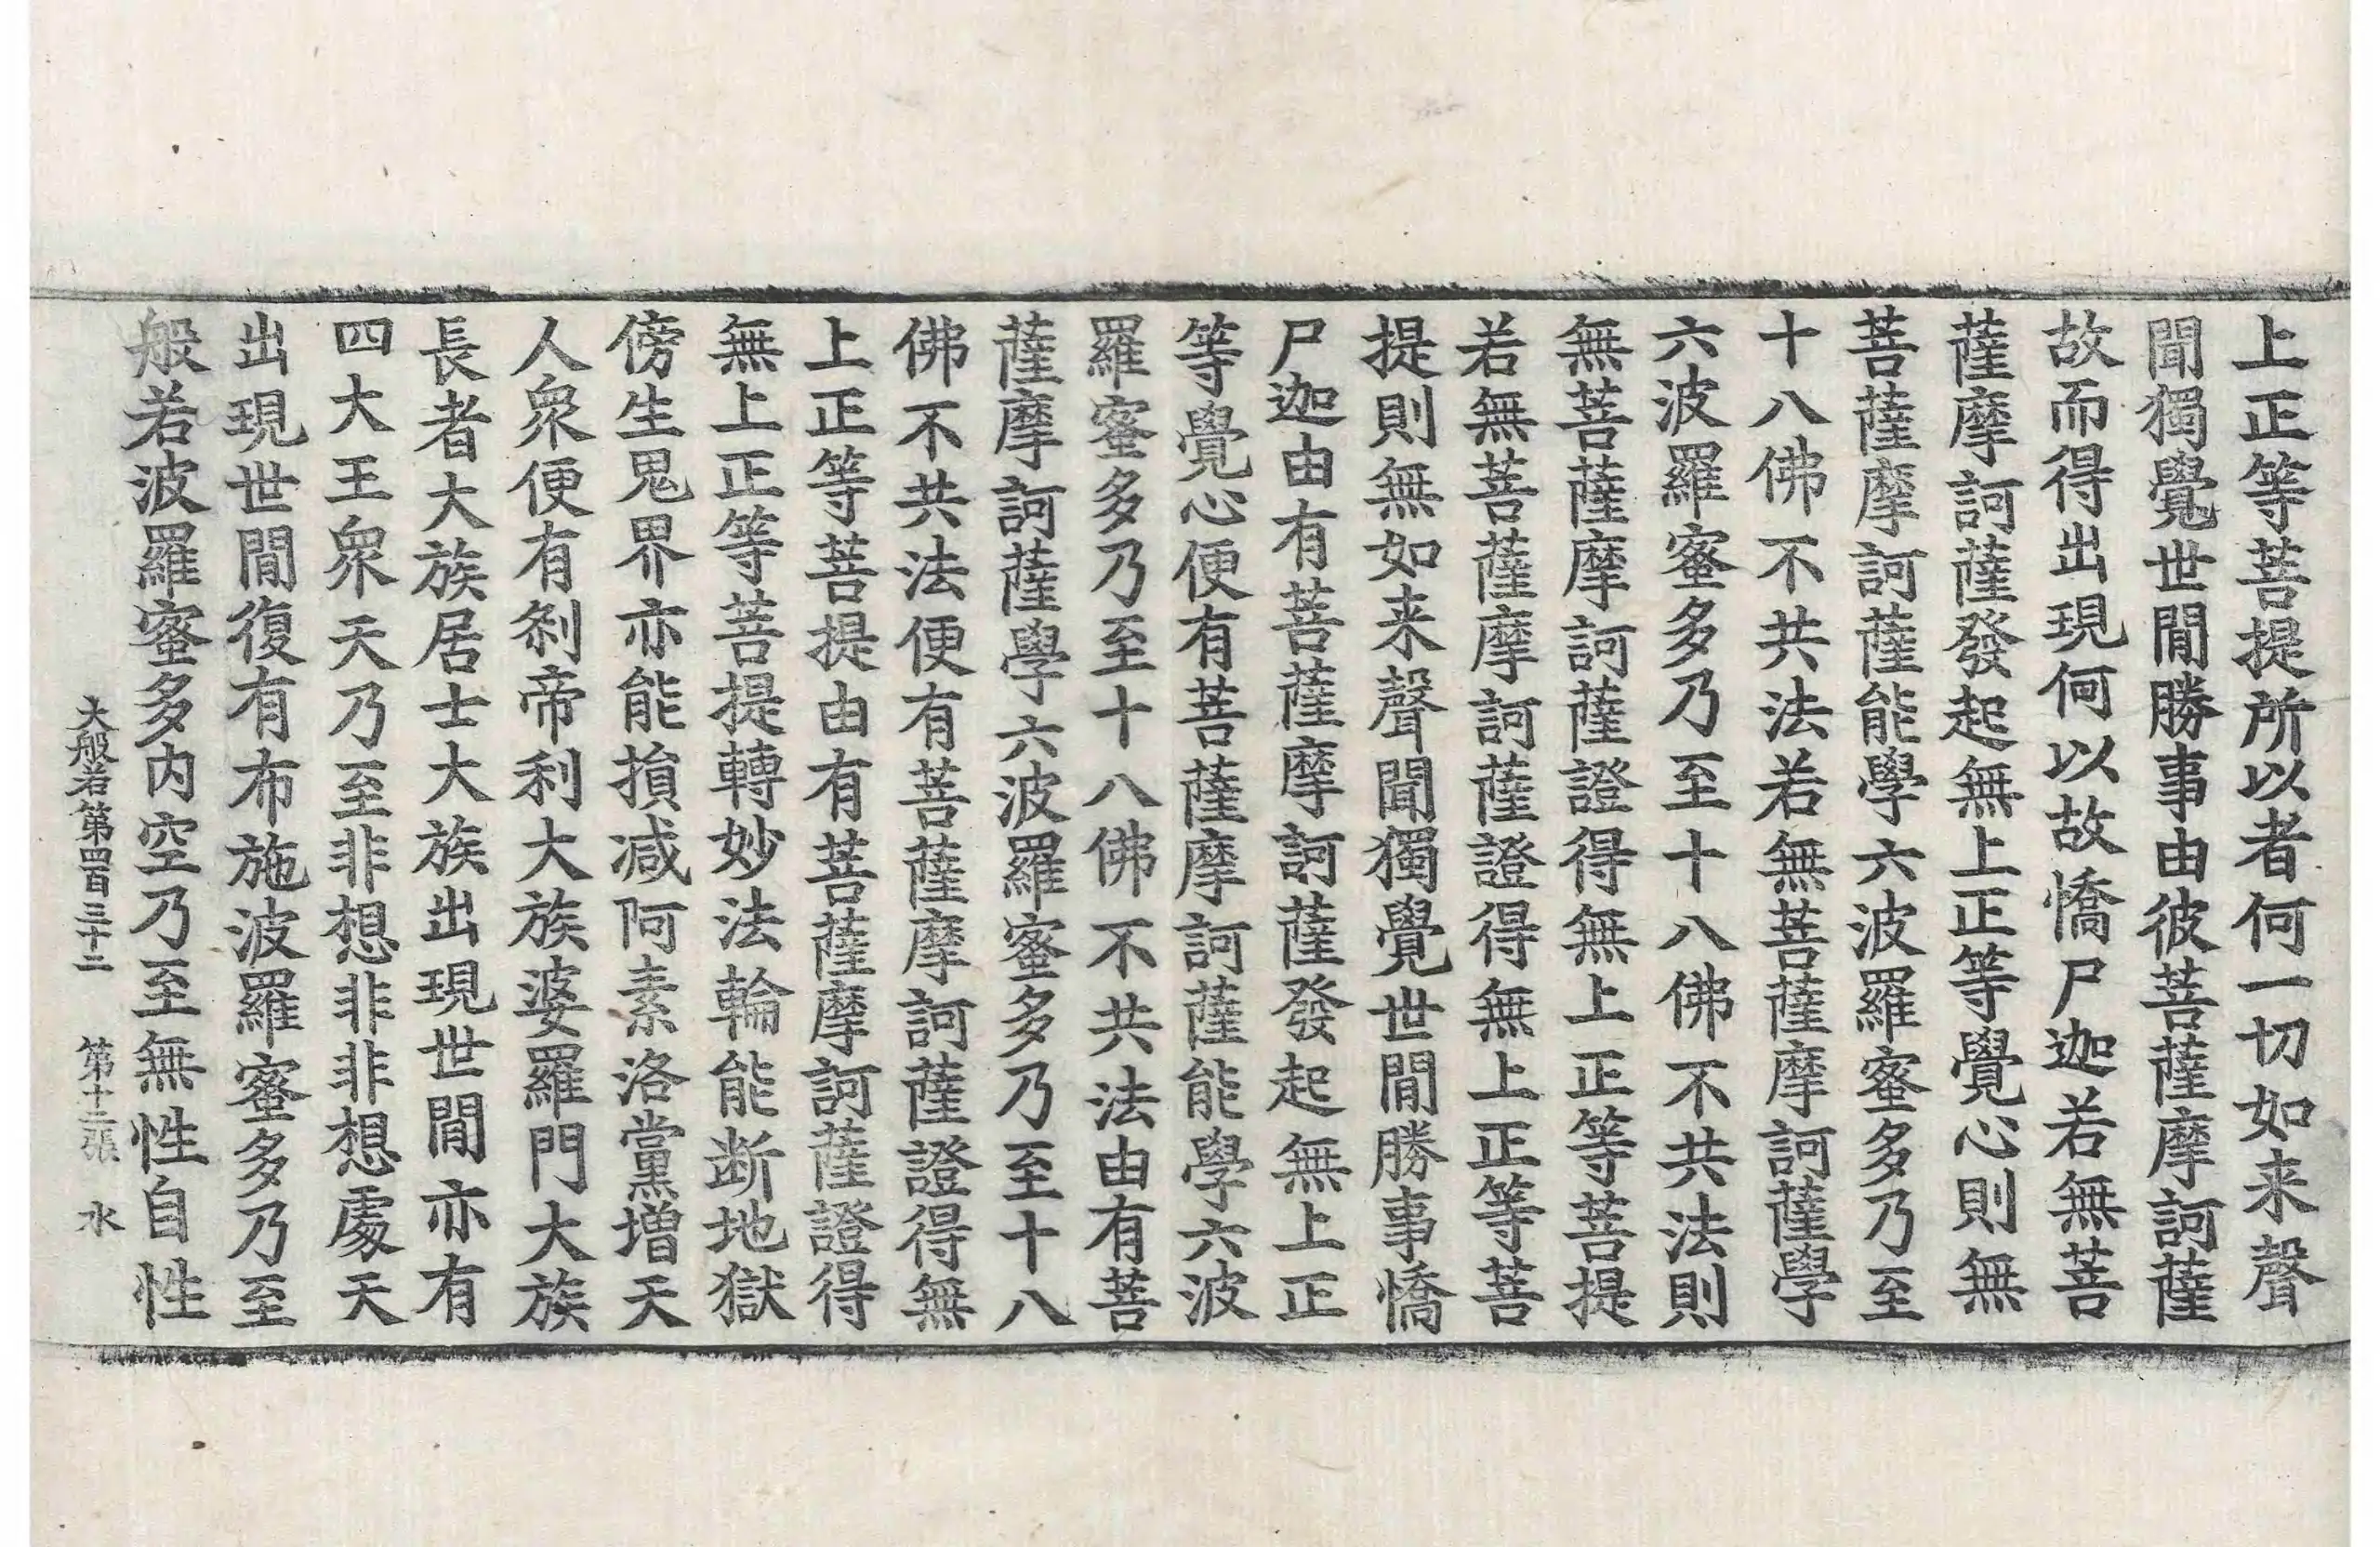 上正等菩提所以者何一切如来聲
聞獨覺世閒勝事由彼菩薩摩訶薩
故而得出現何以故憍尸迦若無菩
薩摩訶薩發起無上正等覺心則無
菩薩摩訶薩能學六波羅蜜多乃至
十八佛不共法若無菩薩摩訶薩學
六波羅蜜多乃至十八佛不共法則
無菩薩摩訶薩證得無上正等菩提
若無菩薩摩訶薩證得無上正等菩
提則無如来聲聞獨覺世閒勝事憍
尸迦由有菩薩摩訶薩發起無上正
等覺心便有菩薩摩訶薩能學六波
羅蜜多乃至十八佛不共法由有菩
薩摩訶薩學六波羅蜜多乃至十八
佛不共法便有菩薩摩訶薩證得無
上正等菩提由有菩薩摩訶薩證得
無上正等菩提轉妙法輪能断地獄
傍生鬼界亦能損减阿素洛黨增天
人衆便有刹帝利大族婆羅門大族
長者大族居士大族出現世閒亦有
四大王衆天乃至非想非非想處天
出現世閒復有布施波羅蜜多乃至
般若波羅蜜多内空乃至無性自性
大般若第四百三十二 第十二張 水